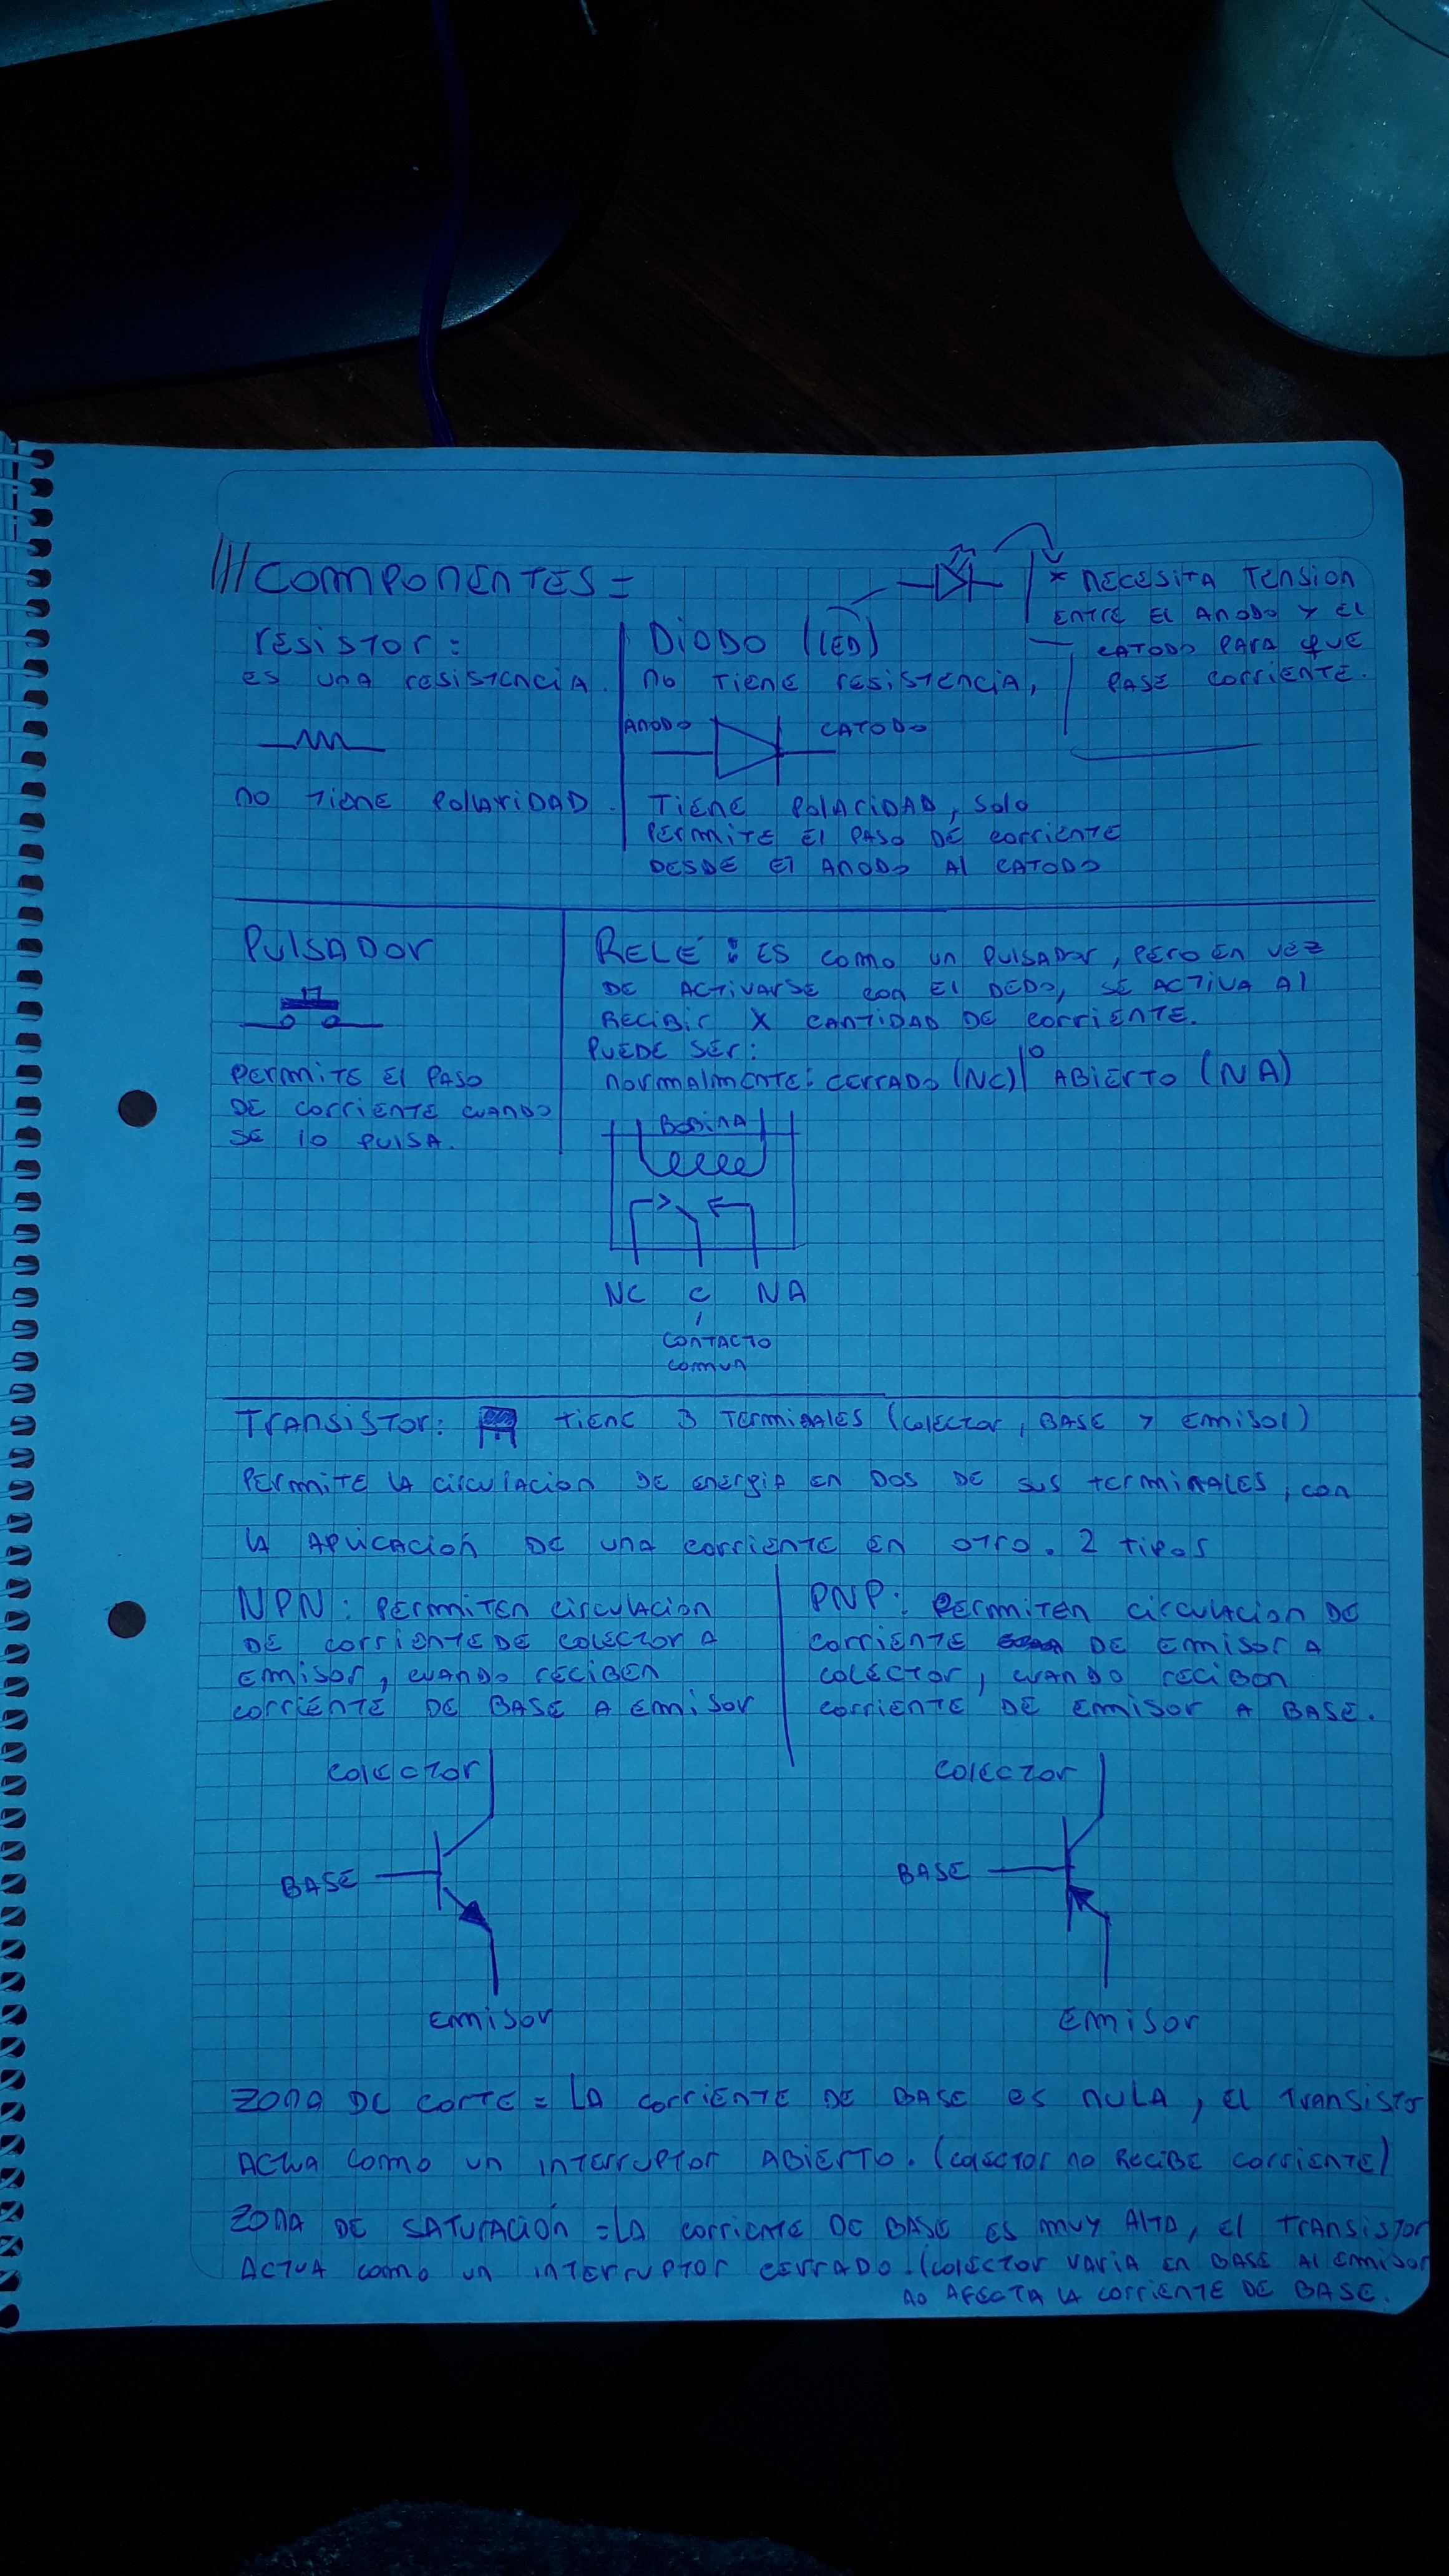 COMPONENTES =
resistor:
ES UNA resistencia.
NO TIENE POLARIDAD.
DIODO (LED)
NO TIENE RESISTENCIA,
ANODO CATODO
TIENE POLARIDAD, SOLO
PERMITE EL PASO DE corriente
DESDE El ANODO Al CATODO
* NECESITA TENSION
ENTRE EL ANODO Y EL
CATODO PARA QUE
PASE corriente.
PULSADOR
PERMITE EL PASO
DE corriente cuando
SE lo PULSA.
RELÉ: ES como un pulsador, PERO EN VEZ
DE ACTIVARSE con El DEDO, SE ACTIVA Al
RECIBIR X CANTIDAD DE corriente.
PUEDE SER:
NORMALMENTE: CERRADO (NC) | O ABIERTO (NA)
BOBINA
NC C NA
CONTACTO
comun
TRANSISTOR: TIENE 3 TERMINALES (colector, BASE Y EMISOR)
PERMITE LA circulacion DE energia EN DOS DE sus terminales, con
LA APLICACION DE una corriente EN OTRO. 2 tipos
NPN: PERMITEN circulacion
DE corriente DE colector A
EMISOR, cuando reciben
corriente DE BASE A EMISOR
PNP: PERMITEN circulacion DE
corriente DE EMISOR A
colector, cuando reciben
corriente DE EMISOR A BASE.
colector
BASE
EMISOR
colector
BASE
EMISOR
ZONA DE CORTE = LA corriente DE BASE es NULA, El transistor
ACTUA como un interruptor ABIERTO. (colector no RECIBE corriente)
ZONA DE SATURACIÓN = LA corriente DE BASE ES muy ALTA, El transistor
ACTUA como un INTERRUPTOR CERRADO. (colector varia EN BASE Al EMISOR
NO AFECTA LA corriente DE BASE.